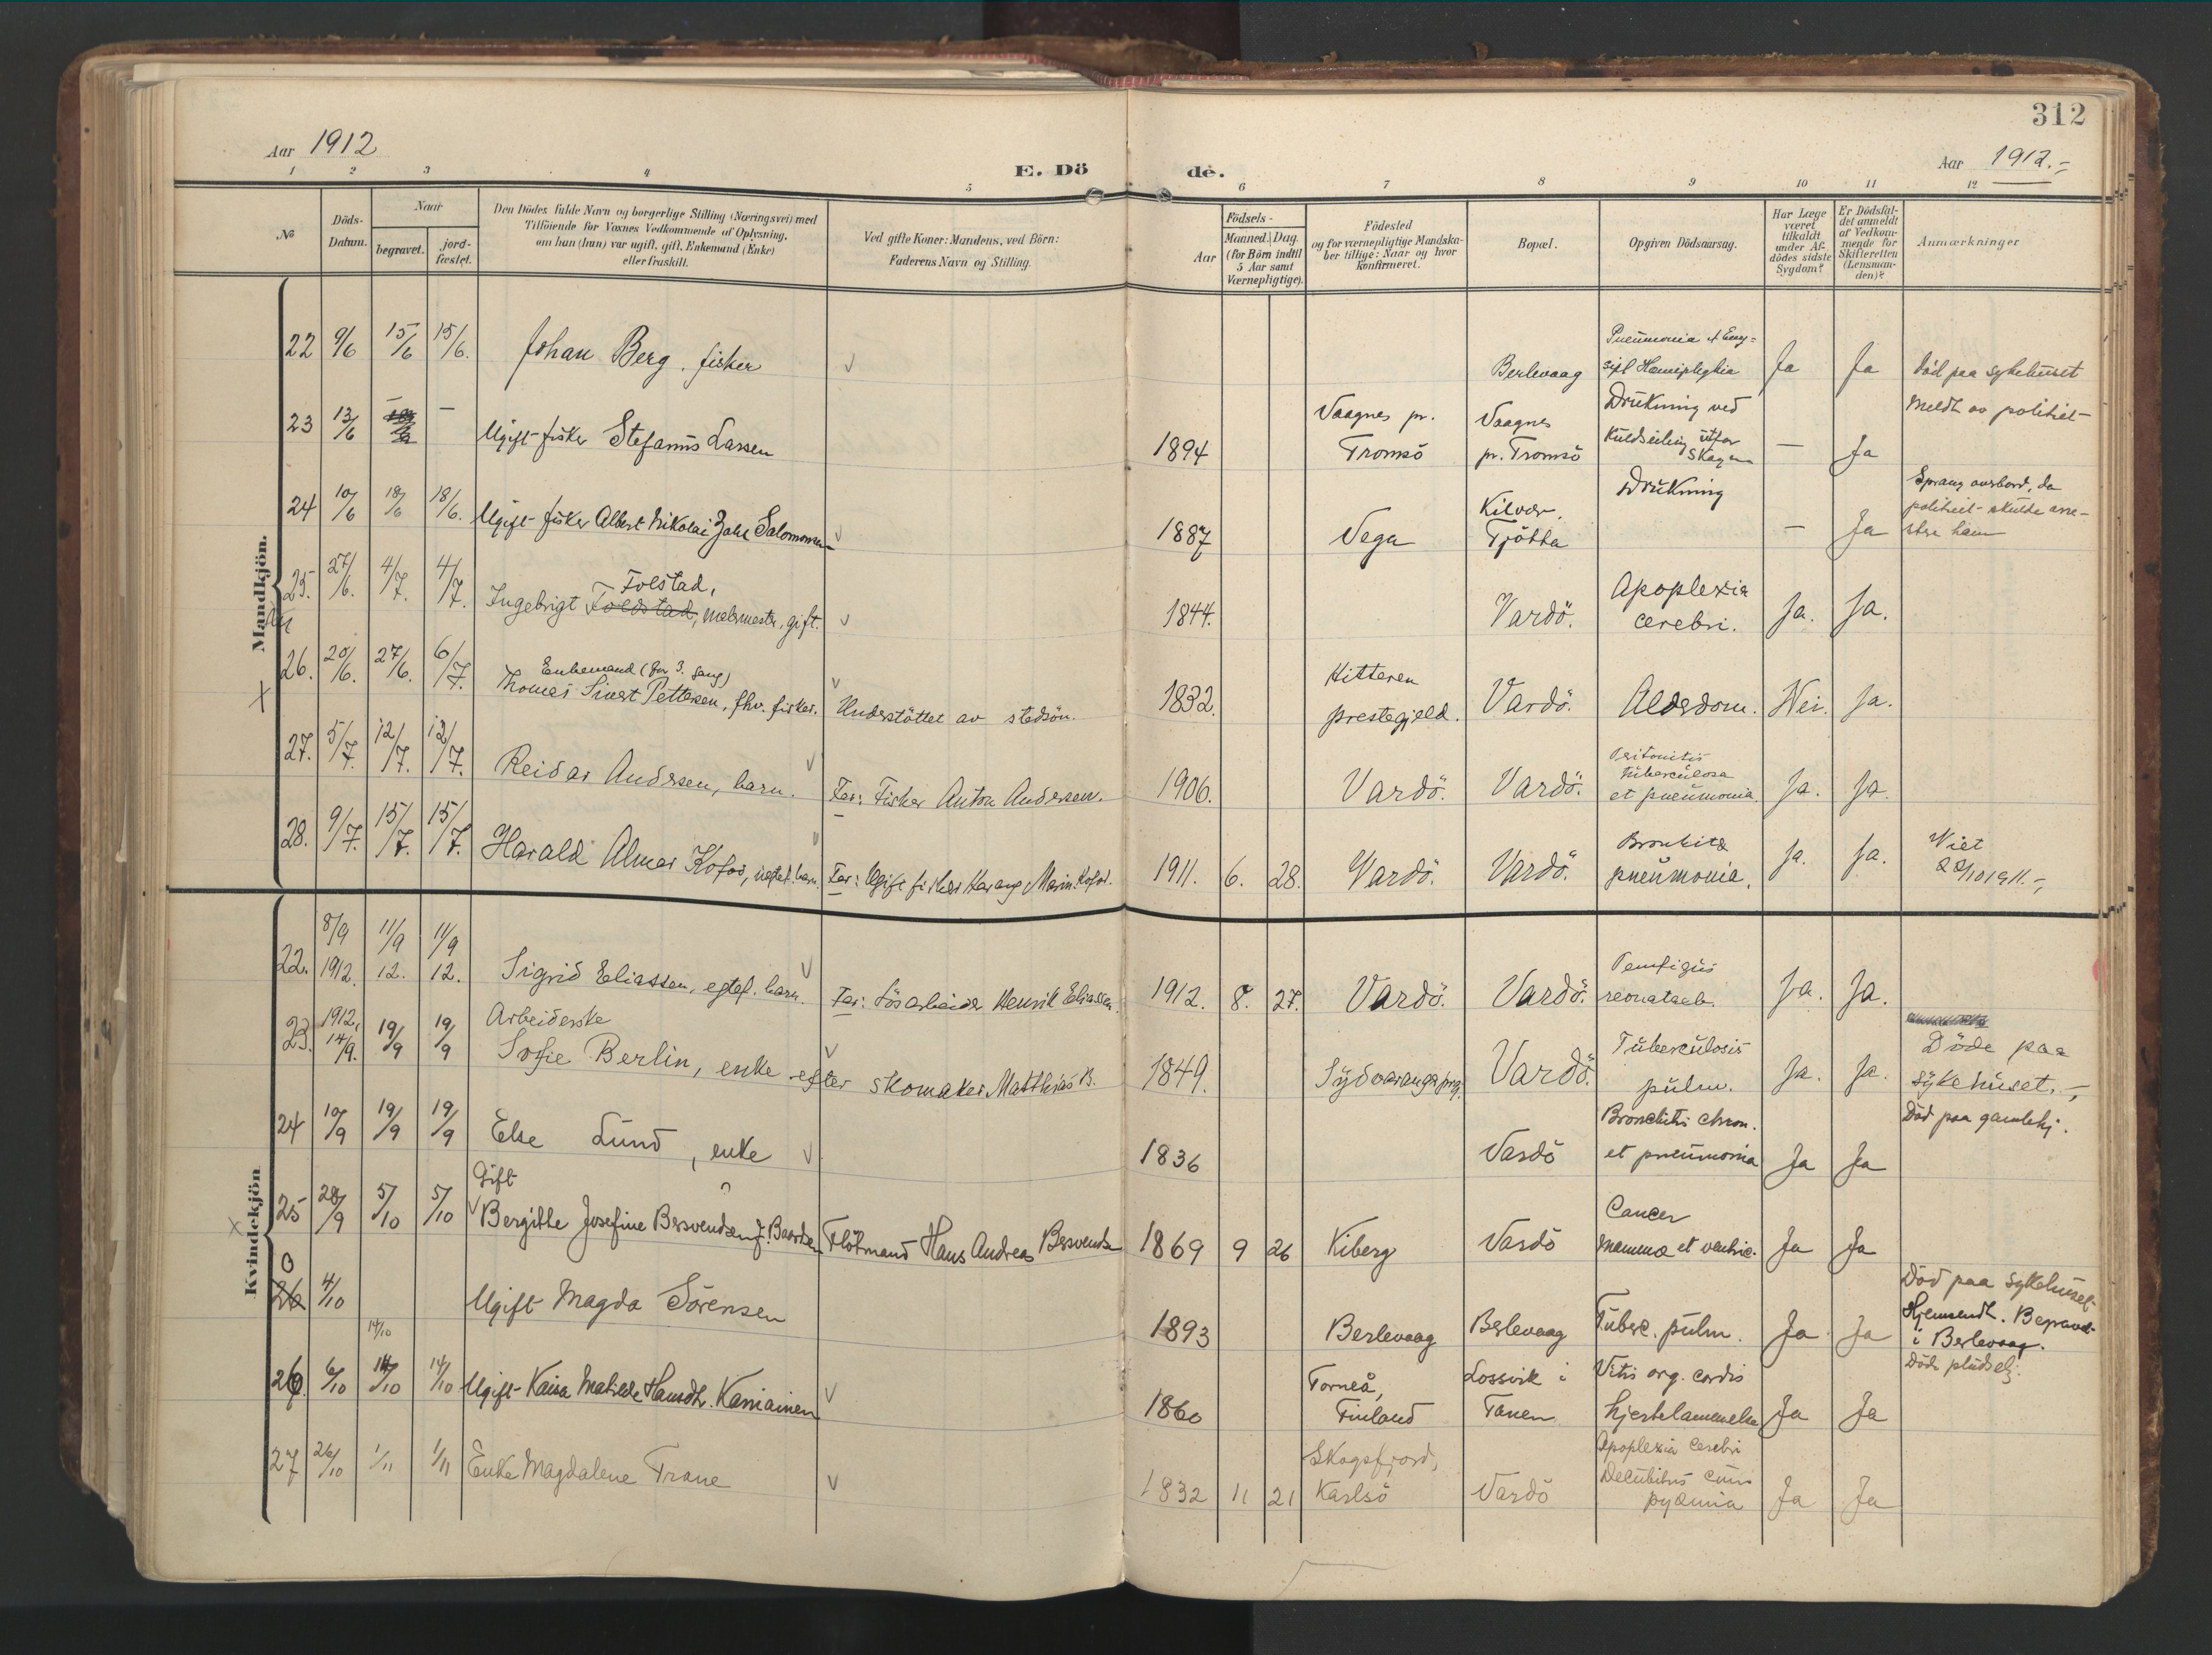 312
Aar 1912
Aar 1912.-
E. Dö de.
1 2 3 4 5 6 7 8 9 10 11 12
No
Döds-Datum.
Naar
begravet.
jord-fæstet.
Den Dödes fulde Navn og borgerlige Stilling (Næringsvei) med
Tilföiende for Voxnes Vedkommende af Oplysning,
om han (hun) var ugift, gift, Enkemand (Enke)
eller fraskilt.
Ved gifte Koner: Mandens, ved Börn:
Faderens Navn og Stilling.
Födsels-
Aar
Maaned. Dag.
(for Börn indtil
5 Aar samt
Værnepligtige).
Födested
og for værnepligtige Mandska-
ber tillige: Naar og hvor
konfirmeret.
Bopæl.
Opgiven Dödsaarsag.
Har Læge
været
tilkaldt
under Af-
dödes sidste
Sygdom?
Er Dödsfal-
det anmeldt
af Vedkom-
mende for
Skifteretten
(Lensman-
den)?
Anmærkninger
Mandkjön.
22 9/6 15/6 15/6. Johan Berg, fisker Berlevaag Pneumonia Hemiplegia Ja Ja Död paa sykehuset
23 13/6 – Ugift fisker Stefanus Larsen 1894 Vaagnes pr. Tromsö Vaagnes pr. Tromsö Drukning ved Kuldseiling utfor Skagen – Ja Meldt av politiet
24 10/6 18/6 18/6. Ugift fisker Albert Nikolai Zahl Salomonsen 1887 Vega Kilvær. Tjötta Drukning – Ja Sprang overbord, da politiet skulde arre-stere ham
25. 27/6. 4/7. 4/7. Ingebrigt Foldstad, Folstad, malermester, gift. 1844. Vardö. Apoplexia cerebri. Ja. Ja.
26. 20/6. 27/6. 6/7. Enkemand (for 3. gang) Thomas Sivert Pettersen, fhv. fisker. Understöttet av stedsön. 1832. Hitteren prestegjeld. Vardö. Alderdom. Nei. Ja.
27. 5/7. 12/7. 12/7. Reidar Andersen, barn. Far: Fisker Anton Andersen. 1906. Vardö. Vardö. Peritonitis tuberculosa et pneumonia. Ja. Ja.
28. 9/7. 15/7. 15/7. Harald Almar Kofod, uegtef. barn. Far: Ugift fisker Harang Marin. Kofod. 1911. 6. 28. Vardö. Vardö. Bronkite pneumonia. Ja. Ja. Viet 22/10 1911.-,
Kvindekjön
22. 8/9 1912. 11/9 12. 11/9 12. Sigrid Eliassen, egtef. barn. Far: Lösarbeider Henrik Eliassen. 1912. 8. 27. Vardö. Vardö. Pemfigus Ja. Ja.
23. 1912, 14/9. 19/9 19/9 Arbeiderske Sofie Berlin, enke efter skomaker Matthias B. 1849. Sydvaranger prg. Vardö. Tuberculosis pulm. Ja. Ja. Döde paa sykehuset.-,
24 10/9 19/9 19/9 Else Lund, enke 1836 Vardö Bronchitis chron. et pneumonia Ja Ja Död paa gamlehj.
25 28/9 5/10 5/10 Gift Bergitte Josefine Besvendsen f. Baardsen Flötmand Hans Andreas Besvendsen 1869 9 26 Kiberg Vardö Cancer mammæ et ventric. Ja Ja
0 26 4/10 Ugift Magda Sörensen 1893 Berlevaag Berlevaag Tuberc. pulm. Ja Ja Död paa sykehuset Hjemsendt. Begravet i Berlevaag.
26. 6/10 14/10 14/10 14/10 Ugift Kaisa Matilde Hansdtr. Kaniainen 1860 Torneå, Finland Lossvik i Tanen Vitis org. cordis hjertelammelse Ja Ja Döde pludselj.
27 26/10 1/11 1/11 Enke Magdalene Trane 1832 11 21 Skogsfjord, Karlsö Vardö Apoplexia cerebri Decubitus cum pyæmia Ja Ja